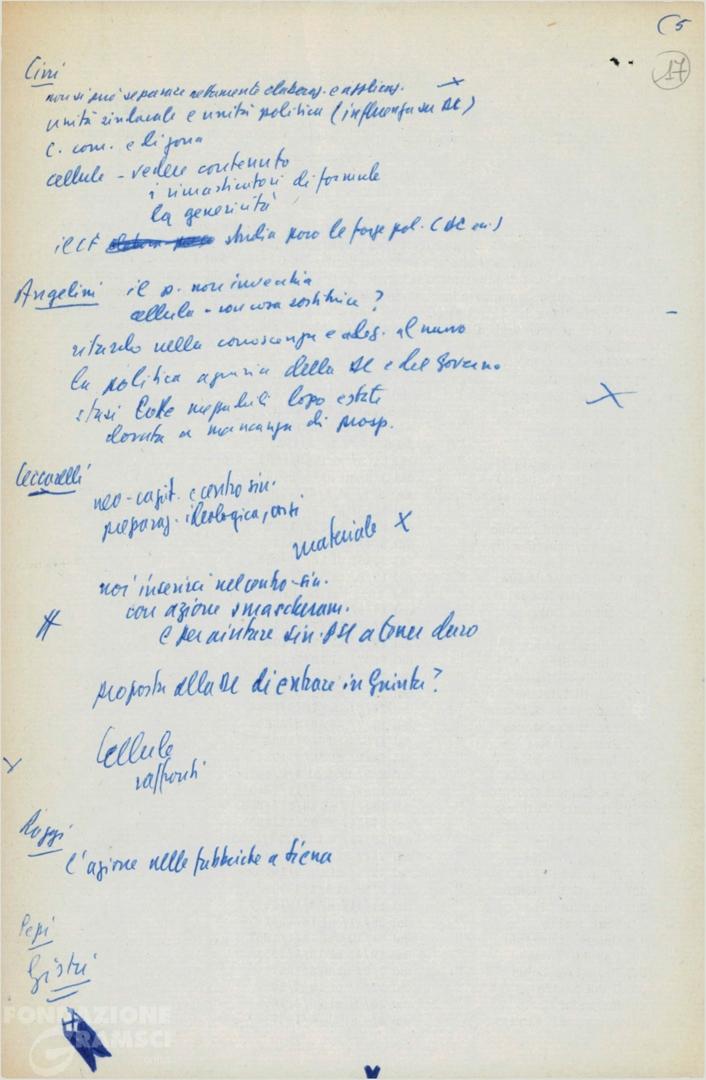 (5
17
Cini
non si può separare nettamente elaboraz. e applicaz.
unità sindacale e unità politica (influenza su DC)
C. com. e di zona
cellule - vedere contenuto
i rimasticatori di formule
la genericità
il CF studia poco le forze pol. (DC
Angelini il p. non invecchia
cellula - con cosa sostituire?
ritardo nella conoscenza e adeg. al nuovo
la politica agraria della DC e del Governo
stasi lotte mezzadrili dopo estate
dovuta a mancanza di prosp.
Ceccarelli
neo-capit. e centro sin.
preparaz. ideologica, corsi
materiale X
noi inserirci nel centro-sin.
con azione smascheram.
e per aiutare sin. PSI a tener duro
proposta alla DC di entrare in Giunta?
Cellule
raffronti
Roggi
l'azione nelle fabbriche a Siena
Pepi
Gistri
FONDAZIONE
GRAMSCI